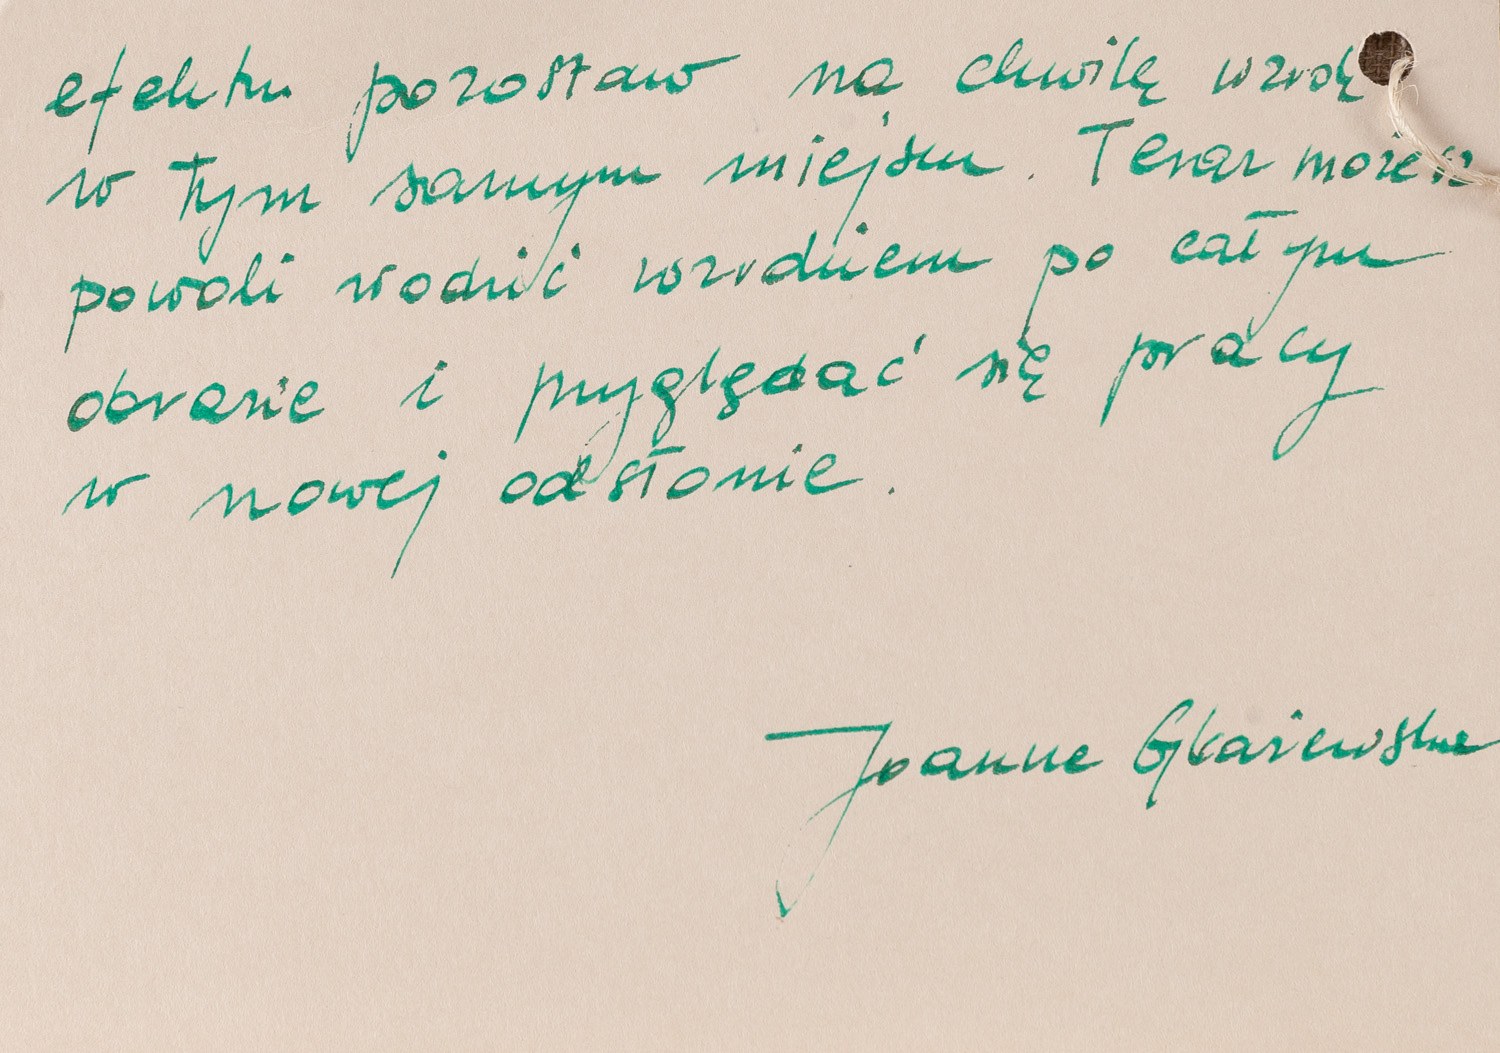 efektu pozostaw na chwilę wzrok
w tym samym miejscu. Teraz możesz
powoli wodzić wzrokiem po całym
obrazie i przyglądać się pracy
w nowej odsłonie.
Joanna